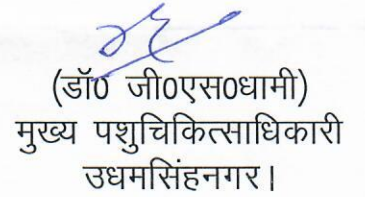 (डॉ0 जी0एस0धामी)
मुख्य पशुचिकित्साधिकारी
उधमसिंहनगर।